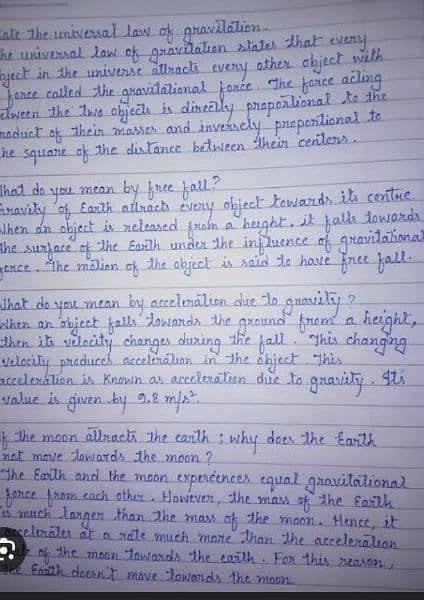 tate the universal law of gravitation.
he universal law of gravitation states that every
bject in the universe attracts every other object with
force called the gravitational force. The force acting
etween the two objects is directly proportional to the
roduct of their masses and inversely proportional to
he square of the distance between their centers.
What do you mean by free fall?
Gravity of Earth attracts every object towards its centre.
When an object is released from a height, it falls towards
the surface of the Earth under the influence of gravitational
force. The motion of the object is said to have free fall.
What do you mean by acceleration due to gravity?
When an object falls towards the ground from a height,
then its velocity changes during the fall. This changing
velocity produces acceleration in the object. This
acceleration is known as acceleration due to gravity. Its
value is given by 9.8 m/s².
If the moon attracts the earth; why does the Earth
not move towards the moon?
The Earth and the moon experences equal gravitational
force from each other. However, the mass of the Earth
is much larger than the mass of the moon. Hence, it
accelerates at a rate much more than the acceleration
of the moon towards the earth. For this reason,
the Earth doesn't move towards the moon